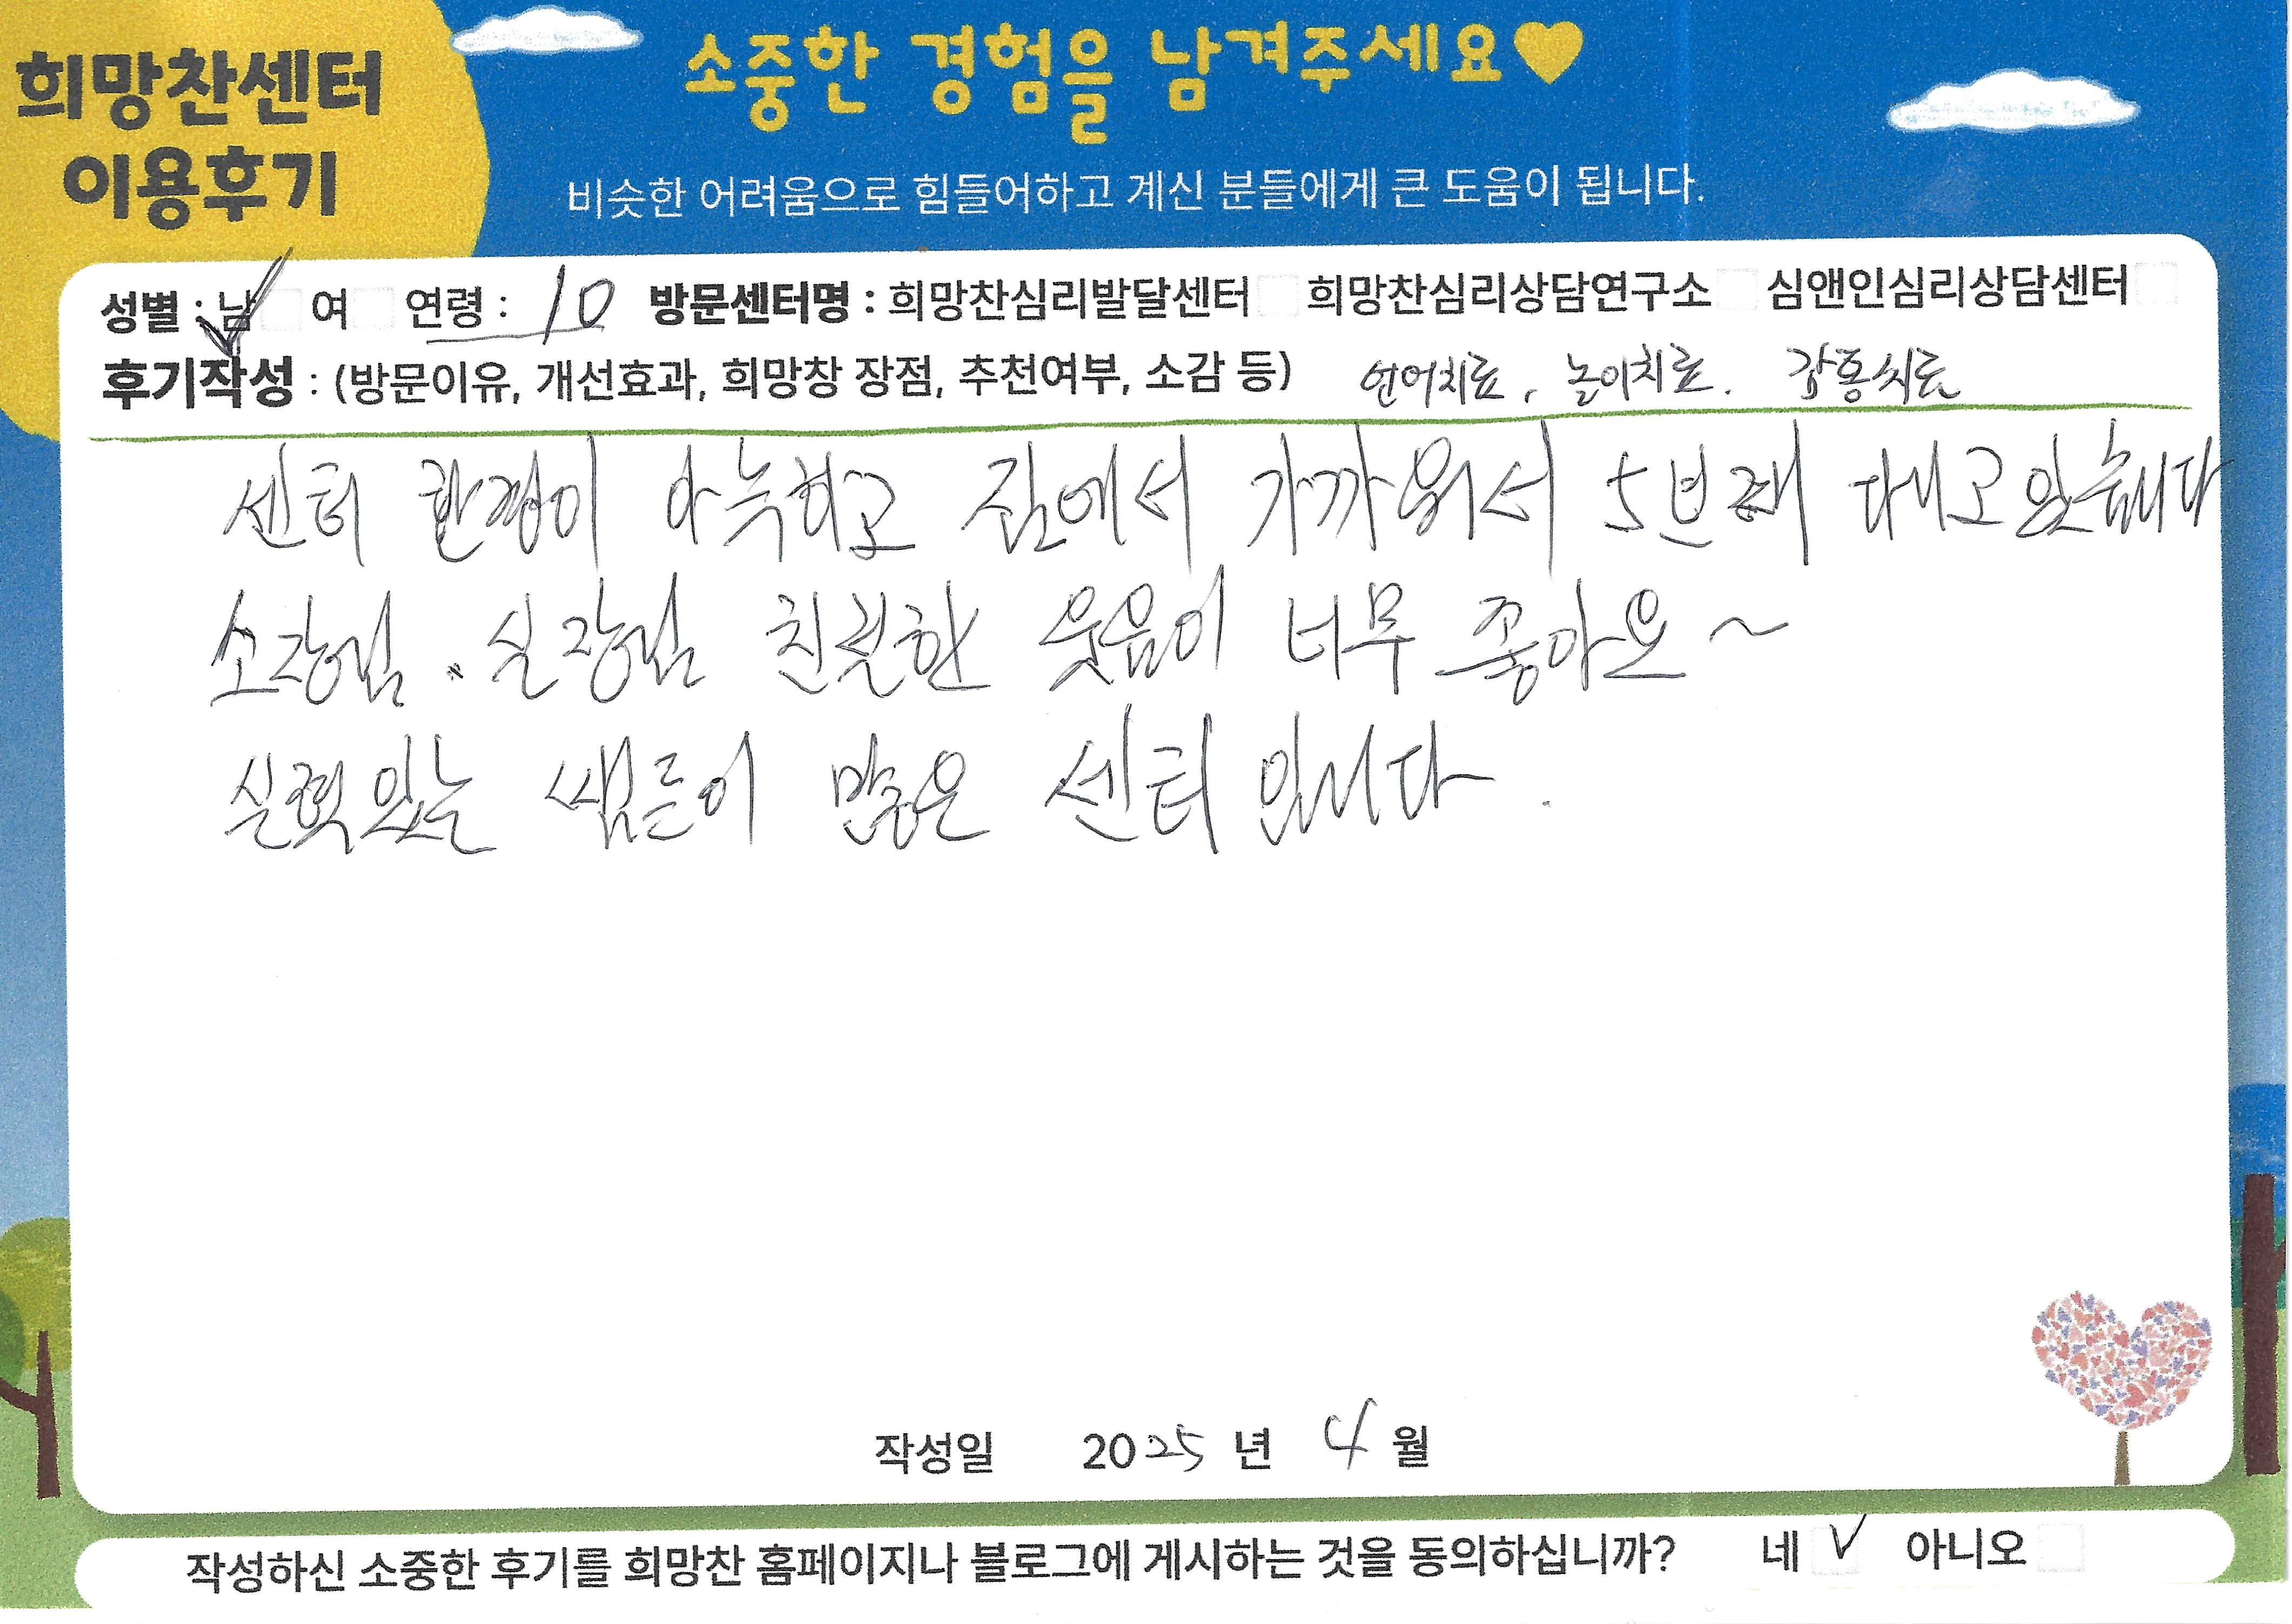 희망찬센터
이용후기
소중한 경험을 남겨주세요♥
비슷한 어려움으로 힘들어하고 계신 분들에게 큰 도움이 됩니다.
성별 : 남 ✓ 여 연령 : 10 방문센터명 : 희망찬심리발달센터 희망찬심리상담연구소 심앤인심리상담센터
후기작성 : (방문이유, 개선효과, 희망창 장점, 추천여부, 소감 등) 언어치료, 놀이치료. 감통치료
센터 환경이 아늑하고 집에서 가까워서 5년째 다니고 있습니다
소장님. 실장님 친절한 웃음이 너무 좋아요~
실력있는 쌤들이 많은 센터 입니다.
작성일 2025 년 4 월
작성하신 소중한 후기를 희망찬 홈페이지나 블로그에 게시하는 것을 동의하십니까? 네 ✓ 아니오